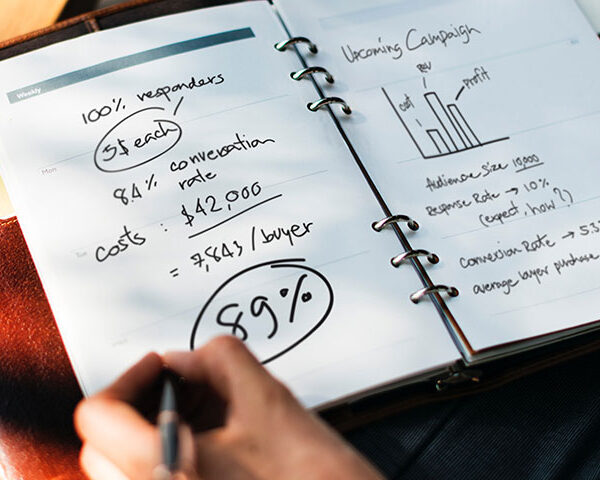 Weekly
100% responders
5$ each
8.4% conversation
rate
costs : $42,000
= 7,843 / buyer
89%
Mon
Upcoming Campaign
cost
Rev
Profit
Audience Size 10,000
Response Rate → 10%
(expect, how?)
Conversion Rate → 5.3
average buyer purchase